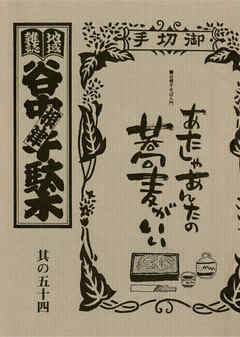 御切手
地域
雑誌
谷中
根津
千駄木
其の五十四
あたしゃあんたの
蕎麦がいい